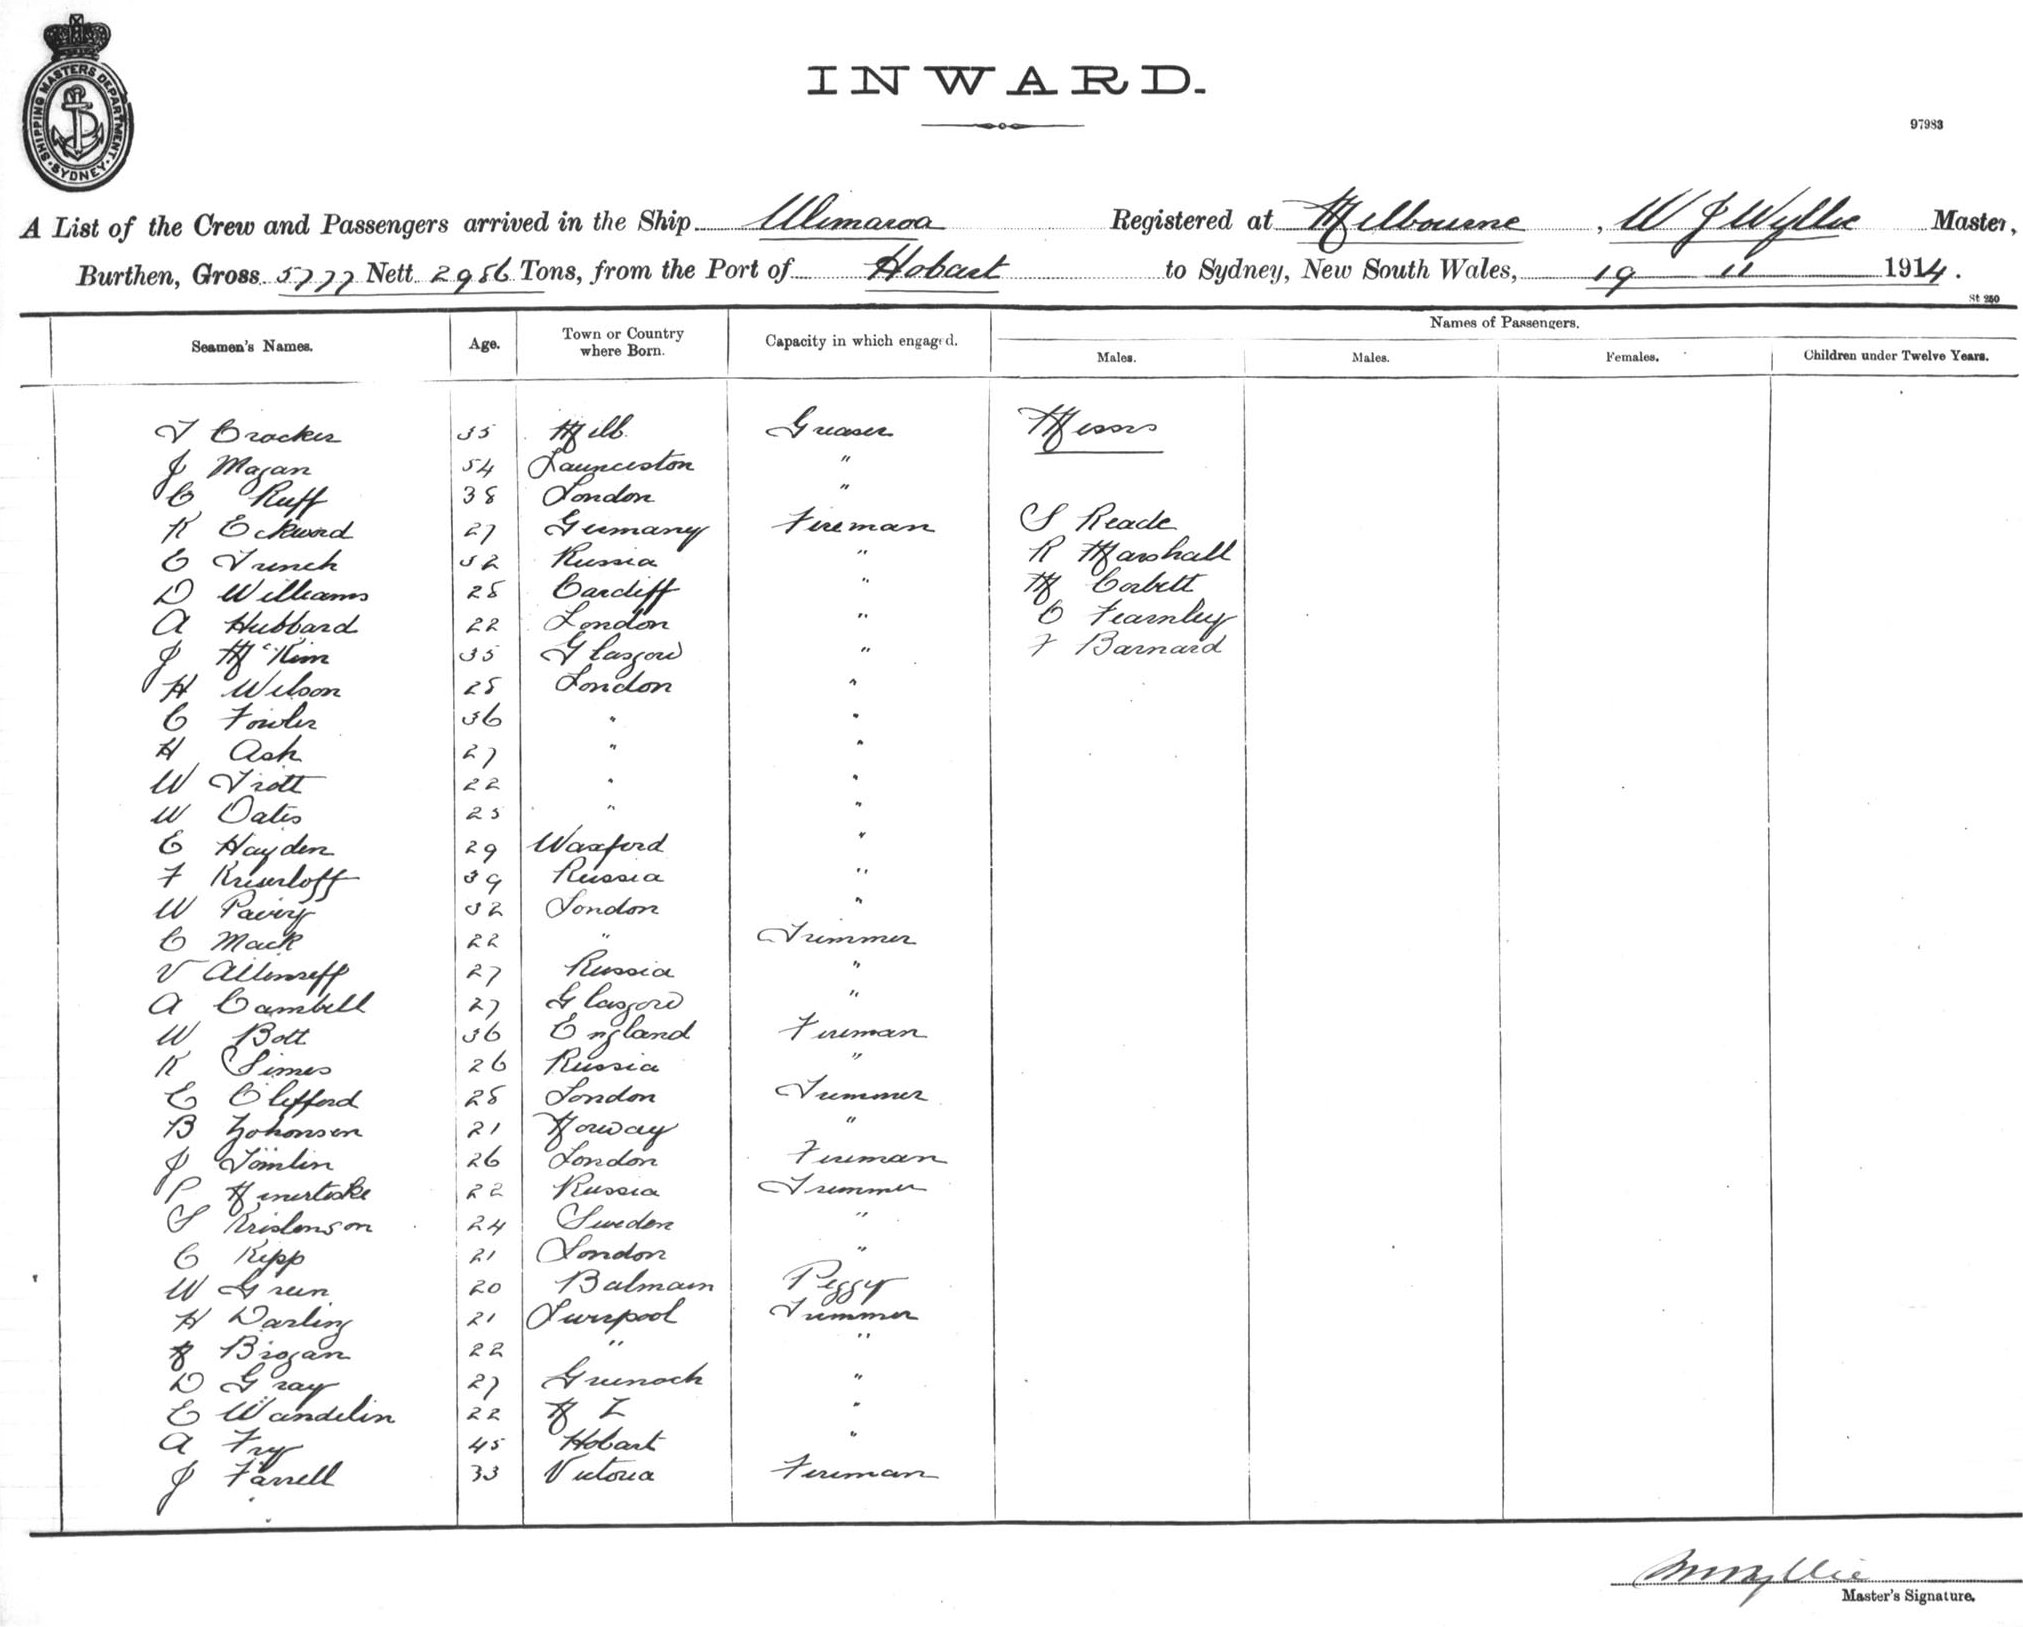 SHIPPING MASTERS DEPARTMENT. SYDNEY.
INWARD.
97983
A List of the Crew and Passengers arrived in the Ship Ulimaroa Registered at Melbourne, W J Wyllie Master,
Burthen, Gross 5777 Nett 2956 Tons, from the Port of Hobart to Sydney, New South Wales, 19 11 1914.
St 250
Names of Passengers.
Seamen's Names. Age. Town or Country where Born. Capacity in which engaged. Males. Males. Females. Children under Twelve Years.
T Crocker 35 Melb. Greaser Messrs
J Magan 54 Launceston "
C Ruff 38 London "
K Eckword 27 Germany Fireman S Reade
E Trench 32 Russia " R Marshall
D Williams 28 Cardiff " M Corbett
A Hubbard 22 London " C Fearnley
J McKim 35 Glasgow " F Barnard
H Wilson 28 London "
C Fowler 36 " "
H Ash 27 " "
W Trott 22 " "
W Oates 25 " "
E Hayden 29 Waxford "
F 39 Russia "
W Pavey 32 London "
C Mack 22 " Trimmer
V 27 Russia "
A Cambell 27 Glasgow "
W Bott 36 England Fireman
K Simes 26 Russia "
E Clifford 28 London Trimmer
B Johonsen 21 Norway "
J Tomlin 26 London Fireman
P 22 Russia Trimmer
S Kristenson 24 Sweden "
C Kipp 21 London "
W Green 20 Balmain Peggy
H Darling 21 Liverpool Trimmer
Brogan 22 " "
D Gray 27 Greenock "
E Wandelin 22 N Z "
A Fry 45 Hobart "
J Farrell 33 Victoria Fireman
W J Wyllie
Master's Signature.